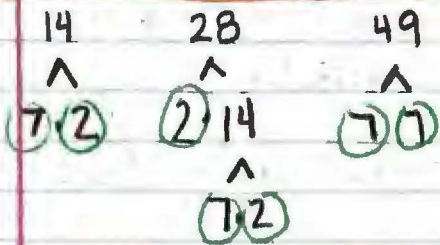 14 28 49
7 · 2 2 · 14 7 7
7 · 2